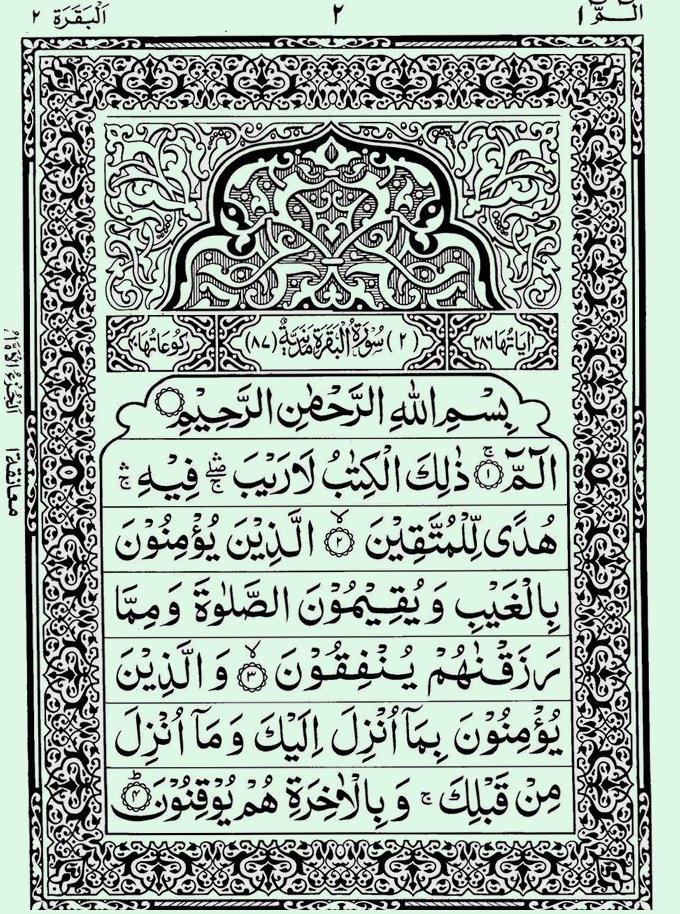 الٓمّٓ ۱ ۲ اَلْبَقَرَة ۲
اٰیَاتُهَا ۲۸۶ (۲) سُوْرَةُ الْبَقَرَةِ مَدَنِیَّةٌ (۸۷) رُكُوْعَاتُهَا ۴۰
بِسْمِ اللهِ الرَّحْمٰنِ الرَّحِیْمِ
الٓمّٓ ۚ﴿۱﴾ ذٰلِكَ الْكِتٰبُ لَا رَیْبَ ۛۖۚ فِیْهِ ۛۚ
هُدًی لِّلْمُتَّقِیْنَ ۙ﴿۲﴾ الَّذِیْنَ یُؤْمِنُوْنَ
بِالْغَیْبِ وَ یُقِیْمُوْنَ الصَّلٰوةَ وَ مِمَّا
رَزَقْنٰهُمْ یُنْفِقُوْنَ ۙ﴿۳﴾ وَ الَّذِیْنَ
یُؤْمِنُوْنَ بِمَاۤ اُنْزِلَ اِلَیْكَ وَ مَاۤ اُنْزِلَ
مِنْ قَبْلِكَ ۚ وَ بِالْاٰخِرَةِ هُمْ یُوْقِنُوْنَ ؕ﴿۴﴾
معانقة ۱